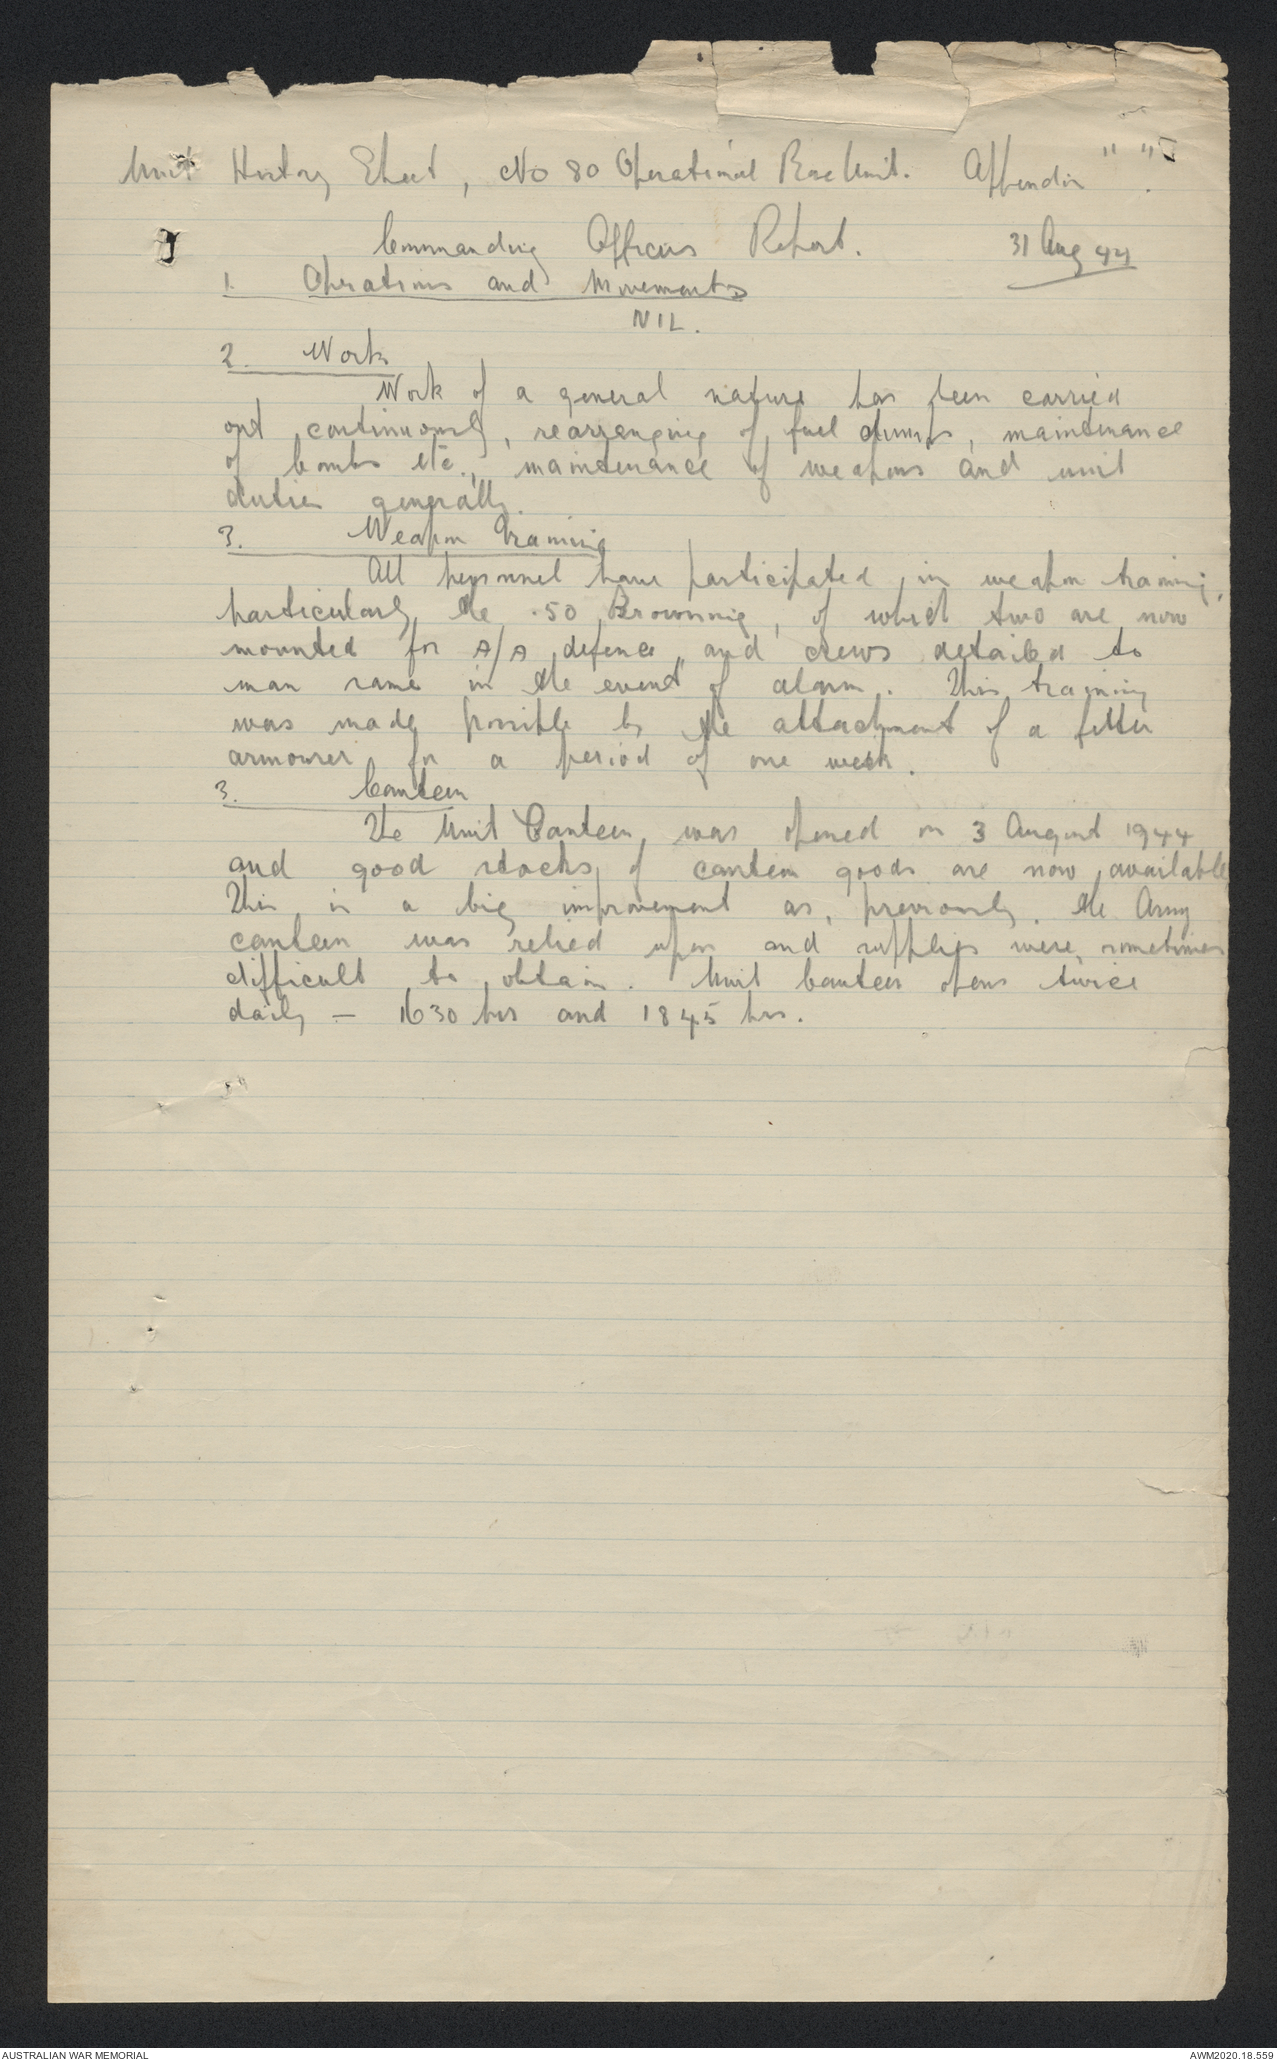 Unit History Sheet, No 80 Operational Base Unit. Appendix " ".
Commanding Officers Report. 31 Aug 44
1. Operations and Movements
NIL.
2. Work
Work of a general nature has been carried
out continuously, rearranging of fuel dumps, maintenance
of bombs etc., maintenance of weapons and unit
duties generally.
3. Weapon Training
All personnel have participated in weapon training,
particularly the .50 Browning, of which two are now
mounted for A/A defence and crews detailed to
man same in the event of alarm. This training
was made possible by the attachment of a fitter
armourer for a period of one week.
3. Canteen
The Unit Canteen was opened on 3 August 1944
and good stocks of canteen goods are now available
This is a big improvement as, previously, the Army
canteen was relied upon and supplies were sometimes
difficult to obtain. Unit Canteen opens twice
daily – 1630 hrs and 1845 hrs.
AUSTRALIAN WAR MEMORIAL AWM2020.18.559